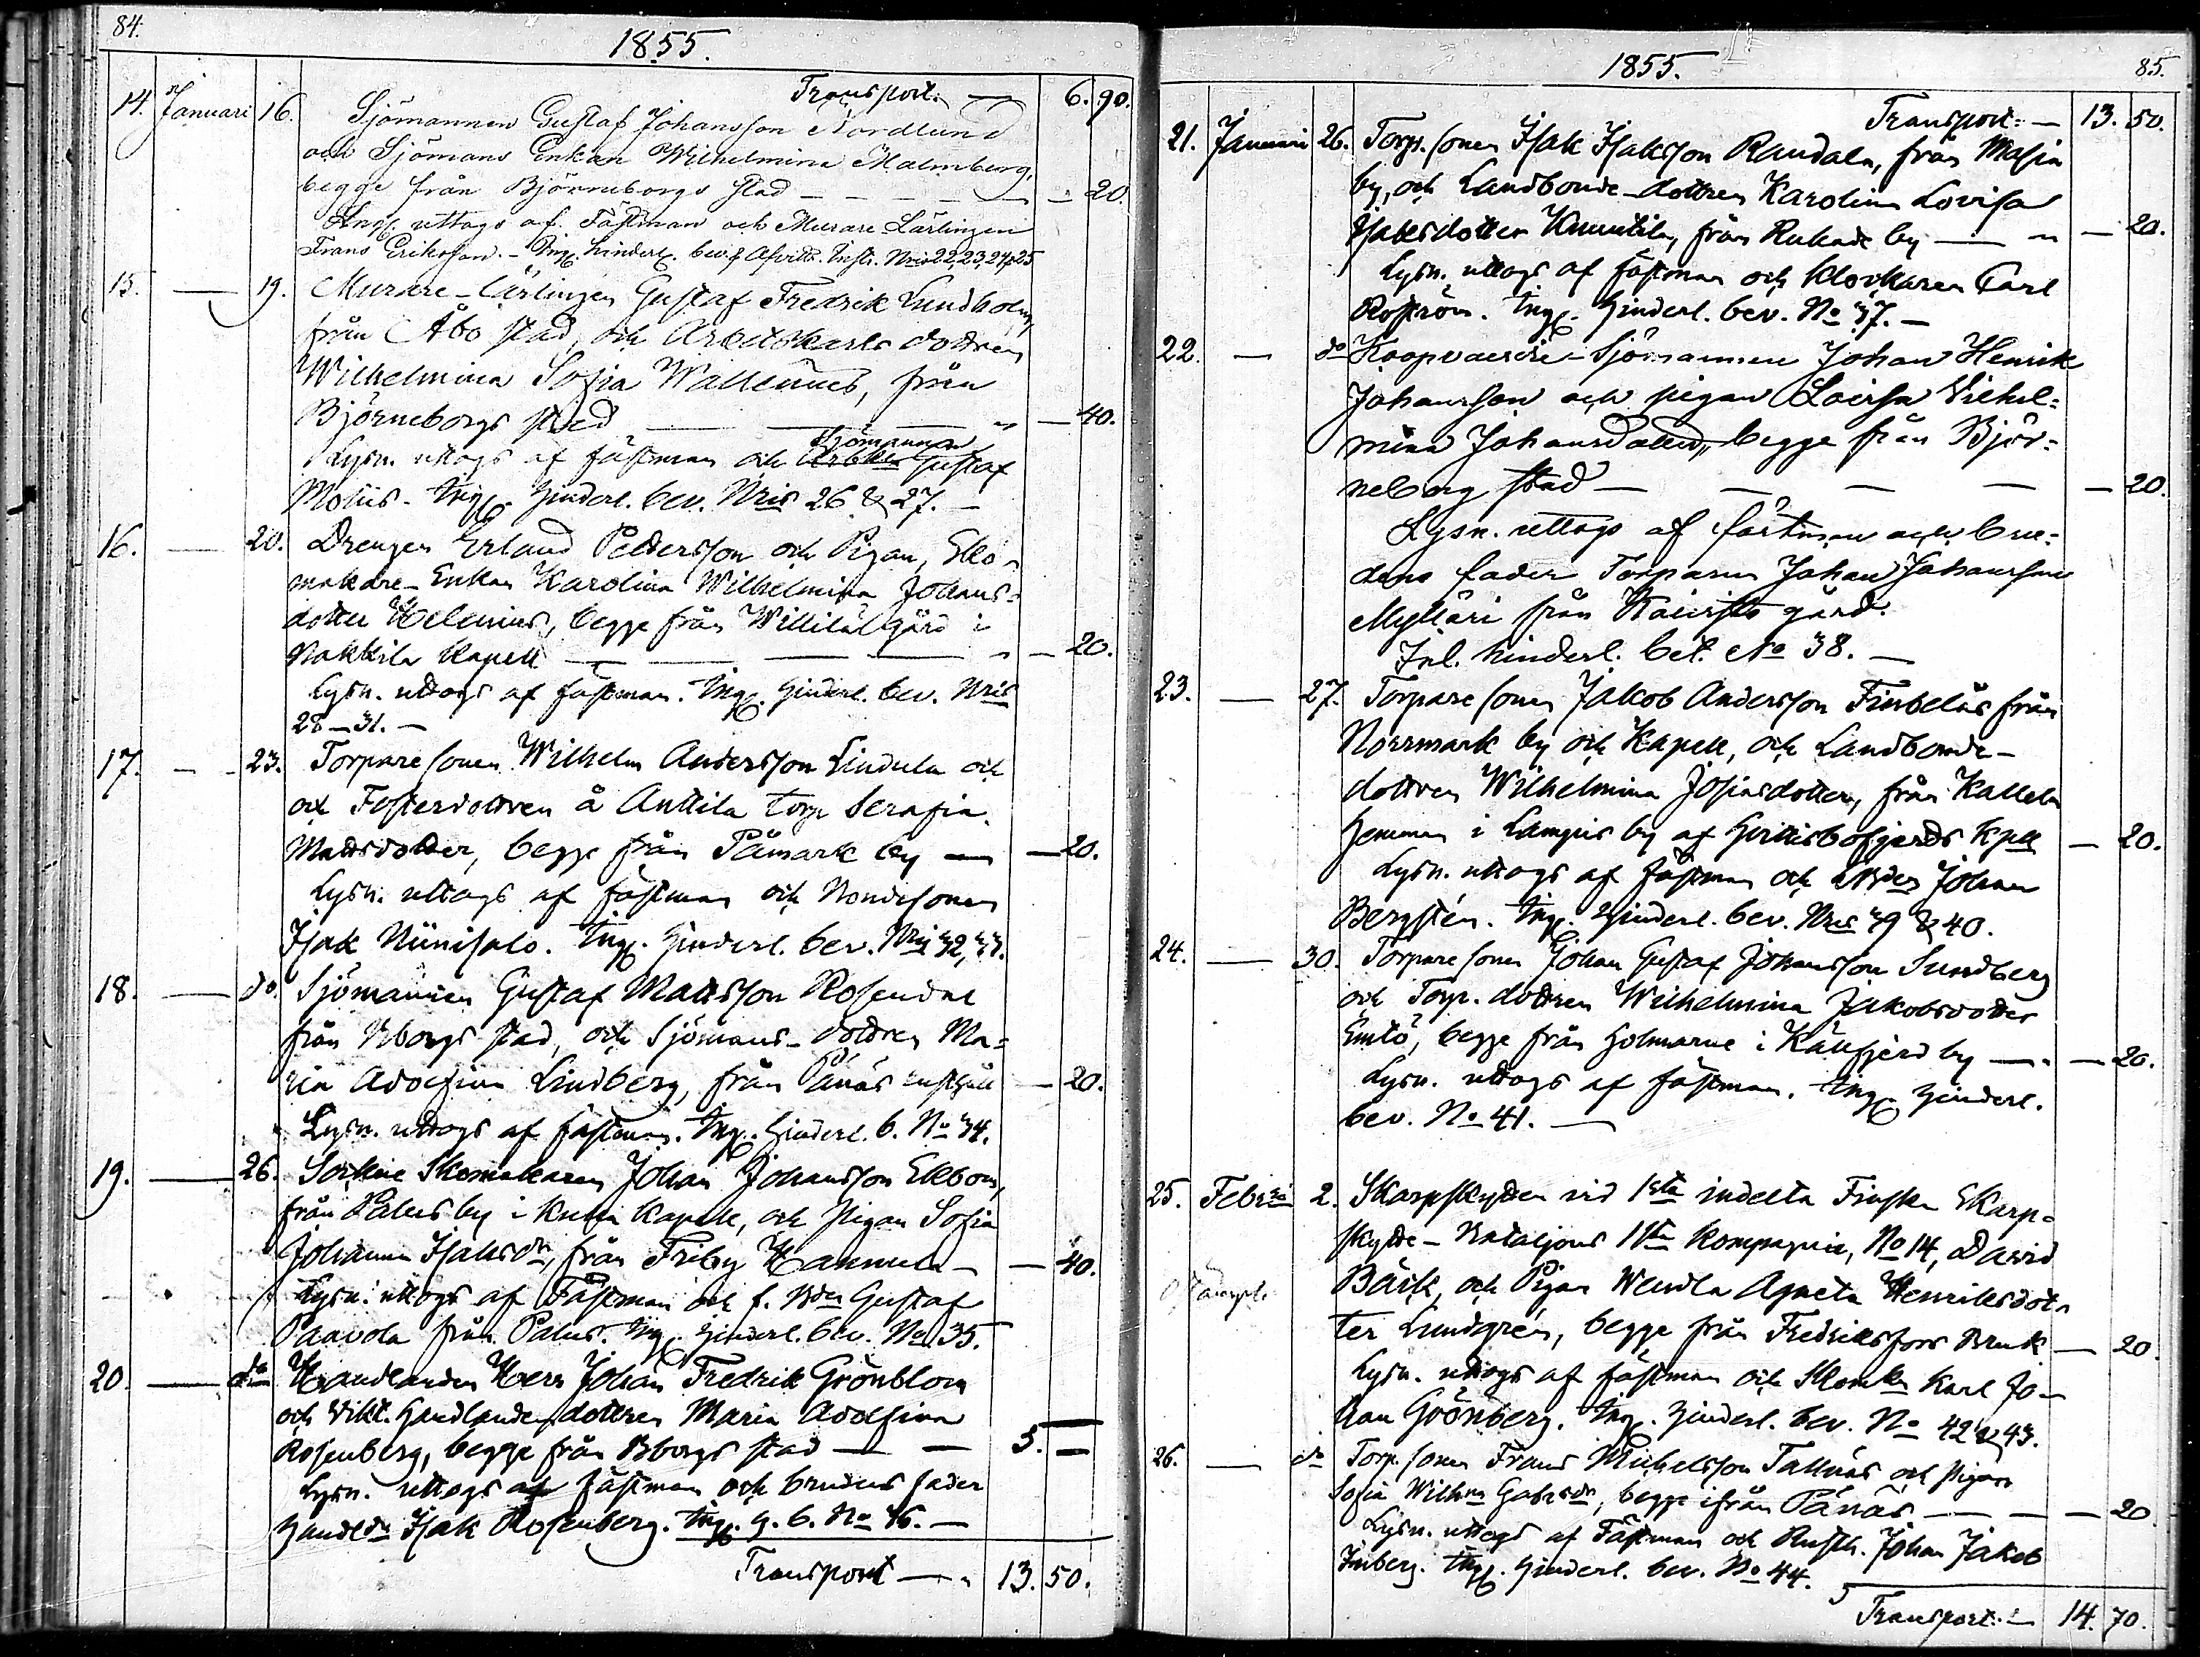 84.
1855.
Transport. — 6. 90.
14. Januari 16. Sjömannen Gustaf Johansson Nordlund
och Sjömans Enkan Wilhelmina Malmberg,
begge från Björneborgs stad — — — — 20.
Lysn. uttogs af Fästman och Murare Lärlingen
Frans Eriksson. – Ing. hinderl. bev. Nris 22, 23, 24, 25
15. — 19. Murare-lärlingen Gustaf Fredrik Lundholm,
från Åbo stad, och Arbetskarls dottren
Wilhelmina Sofia Wallenius, från
Björneborgs stad — — — 40.
Sjömannen
Lysn. uttogs af fästman och Gustaf
Ing. hinderl. bev. Nris 26 & 27. —
16. — 20. Drengen Erland Pettersson och Pigan, Sko-
makare-Enkan Karolina Wilhelmina Johans-
dotter Helenius, begge från Willilä gård i
Nakkila Kapell — — — — 20.
Lysn. uttogs af fästman. Ing. hinderl. bev. Nris
28 — 31. —
17. — 23. Torpare sonen Wilhelm Andersson Lindula och
och Fosterdottren å Anttila torp Serafia
Mattsdotter, begge från Påmark by — — 20.
Lysn. uttogs af fästman och Bondesonen
Isak Niinisalo. Ing. hinderl. bev. Nris 32, 33.
18. — do. Sjömannen Gustaf Mattsson Rosendal
från Bborgs stad, och Sjömans-dottren Ma-
ria Adolfina Lindberg, från Pånäs rusthåll — 20.
Lysn. uttogs af fästman. Ing. hinderl. b. No 34.
19. — 26. Sockne Skomakaren Johan Johansson Ekbom,
från Palus by i Kumo Kapell, och Pigan Sofia
Johanna Isaksdr, från Friby Hannula — — 40.
Lysn. uttogs af Fästman och f. Bden Gustaf
Paavola från Palus. Ing. hinderl. bev. No 35.
20. — do Handlanden Herr Johan Fredrik Grönblom
och Vikt. handlande-dottren Maria Adolfina
Rosenberg, begge från Bborgs stad — — 5. —
Lysn. uttogs af fästman och brudens fader
Handldn Isak Rosenberg. Ing. h. b. No 36. —
Transport — 13. 50.
1855.
85.
Transport. — 13. 50.
21. Januari 26. Torp. sonen Isak Isaksson Randala, från Masia
by, och Landbonde-dottren Karolina Lovisa
Isaksdotter Knuutila, från Ruhade by — — 20.
Lysn. uttogs af fästman och klockaren Carl
Roström. Ing. hinderl. bev. No 37. —
22. — do Koopvaerdie-Sjömannen Johan Henrik
Johansson och pigan Lovisa Vilhel-
mina Johansdotter, begge från Björ-
neborg stad — — — — 20.
Lysn. uttogs af fästman och bru-
dens fader Torparen Johan Johansson
Mylläri från gård.
Inl. hinderl. bet. No 38. —
23. — 27. Torpare sonen Jakob Andersson Finbelås från
Norrmark by och Kapell, och Landbonde-
dottren Wilhelmina Josiasdotter, från Kallela
hemman i Lampis by af Hvittisbofjerds Kpell — 20.
Lysn. uttogs af fästman och Johan
Bergstén. Ing. hinderl. bev. Nris 39 & 40.
24. — 30. Torpare sonen Johan Gustaf Johansson Sundberg
och Torp. dottren Wilhelmina Jakobsdotter
Emtö, begge från Holmarne i Källfjerd by — — 20.
Lysn. uttogs af fästman. Ing. hinderl.
bev. No 41. —
25. Febri 2. Skarpskytten vid 1sta indelta Finska Skarp-
skytte-Bataljons 1sta Kompagnie, No 14, David
Bärk, och Pigan Wendla Agneta Henriksdot-
ter Lundgrén, begge från Fredriksfors Bruk — 20.
Lysn. uttogs af fästman och Skomkn Karl Jo-
han Grönberg. Ing. hinderl. bev. No 42 & 43.
26. — do Torp. sonen Frans Michelsson Tallnäs och Pigan
Sofia Wilhna Gabrsdr, begge ifrån Pånäs — — — 20
Lysn. uttogs af Fästman och Rusth. Johan Jakob
Inberg. Ing. hinderl. bev. No 44.
Transport. — 14. 70.